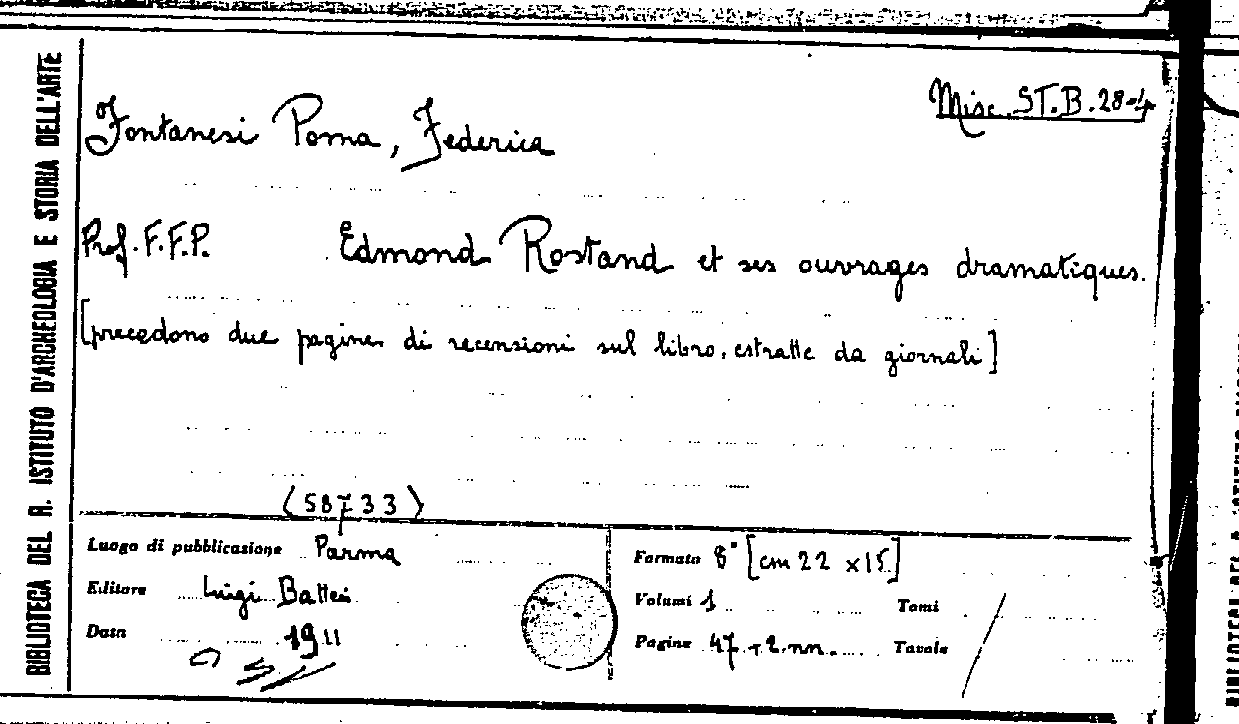 BIBLIOTECA DEL R. ISTITUTO D'ARCHEOLOGIA E STORIA DELL'ARTE
Misc. ST.B.28-4
Fontanesi Poma, Federica
Prof. F.F.P. Edmond Rostand et ses ouvrages dramatiques.
[precedono due pagine di recensioni sul libro, estratte da giornali]
(58733)
Luogo di pubblicazione Parma
Editore Luigi Battei
Data 1911
Formato 8° [cm 22 x 15]
Volumi 1 Tomi
Pagine 47 + 2 nn. Tavole